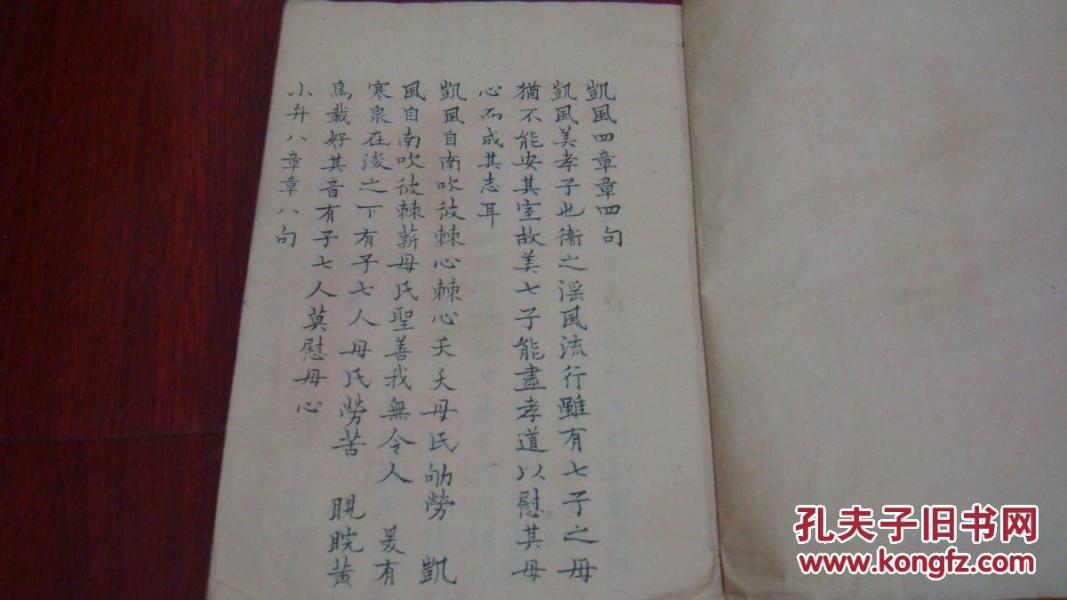 凱風四章章四句
凱風美孝子也衛之淫風流行雖有七子之母
猶不能安其室故美七子能盡孝道以慰其母
心而成其志耳
凱風自南吹彼棘心棘心夭夭母氏劬勞 凱
風自南吹彼棘薪母氏聖善我無令人 爰有
寒泉在浚之下有子七人母氏勞苦 睍睆黃
鳥載好其音有子七人莫慰母心
小弁八章章八句
孔夫子旧书网
www.kongfz.com